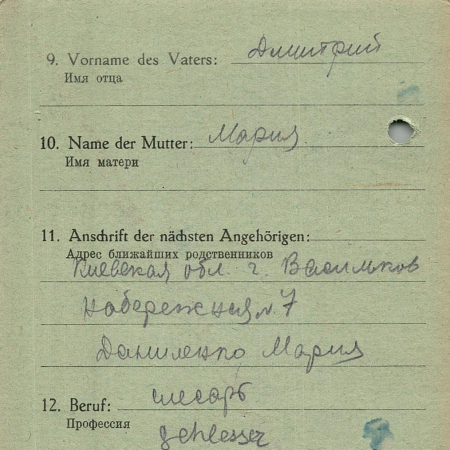 9. Vorname des Vaters: Дмитрий
Имя отца
10. Name der Mutter: Мария
Имя матери
11. Anschrift der nächsten Angehörigen:
Адрес ближайших родственников
Киевская обл. г. Васильков
Набережная № 7
Даниленко Мария
12. Beruf: слесарь
Профессия
Schlesser